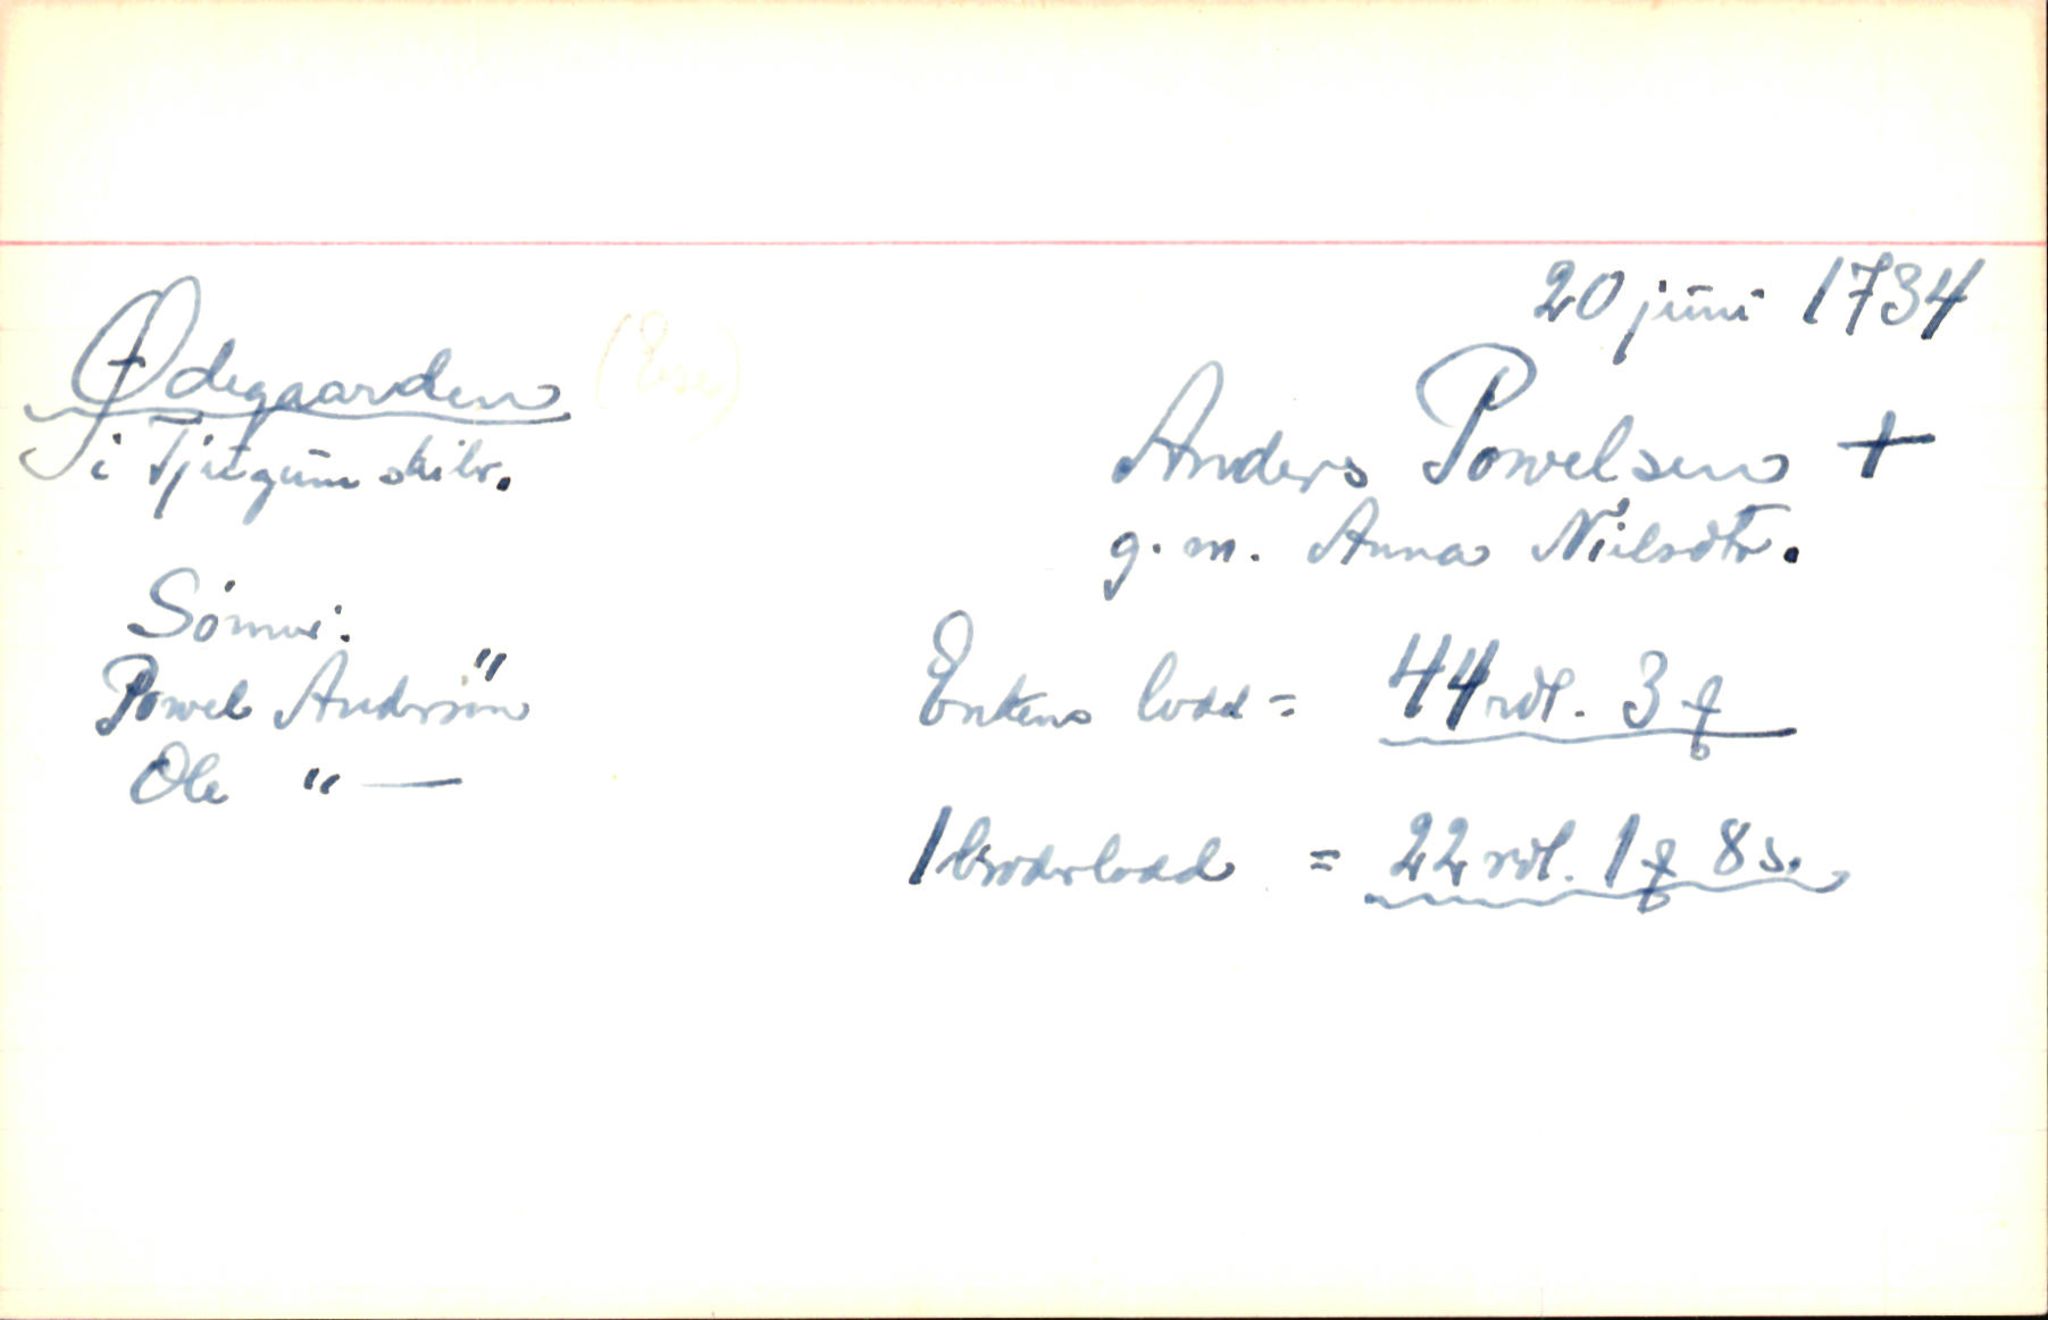 20 juni 1734
Ødegaarden
i Tjugum skibr.
Anders Powelsen +
g. m. Anna Nielsdtr.
Sønner:
Powel Andersøn "
Ole " —
Enkens lodd = 44 rdl. 3 ₰
1 broderlodd = 22 rdl. 1 ₰ 8 s.